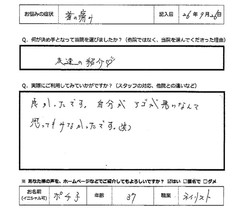 お悩みの症状 首の痛み 記入日 26年9月26日
Q. 何が決め手となって当院を選びましたか？（他院ではなく、当院を選んでくださった理由）
友達の紹介♡
Q. 実際にご利用してみていかがですか？（スタッフの対応、他院との違いなど）
良かったです。自分が
思ってもなかったです。(笑)
※ あなた様の声を、ホームページなどでご紹介してもよろしいですか？ ☑はい □匿名で □ダメ
お名前 ポチ子 年齢 37 職業 ネイリスト
(イニシャル可)